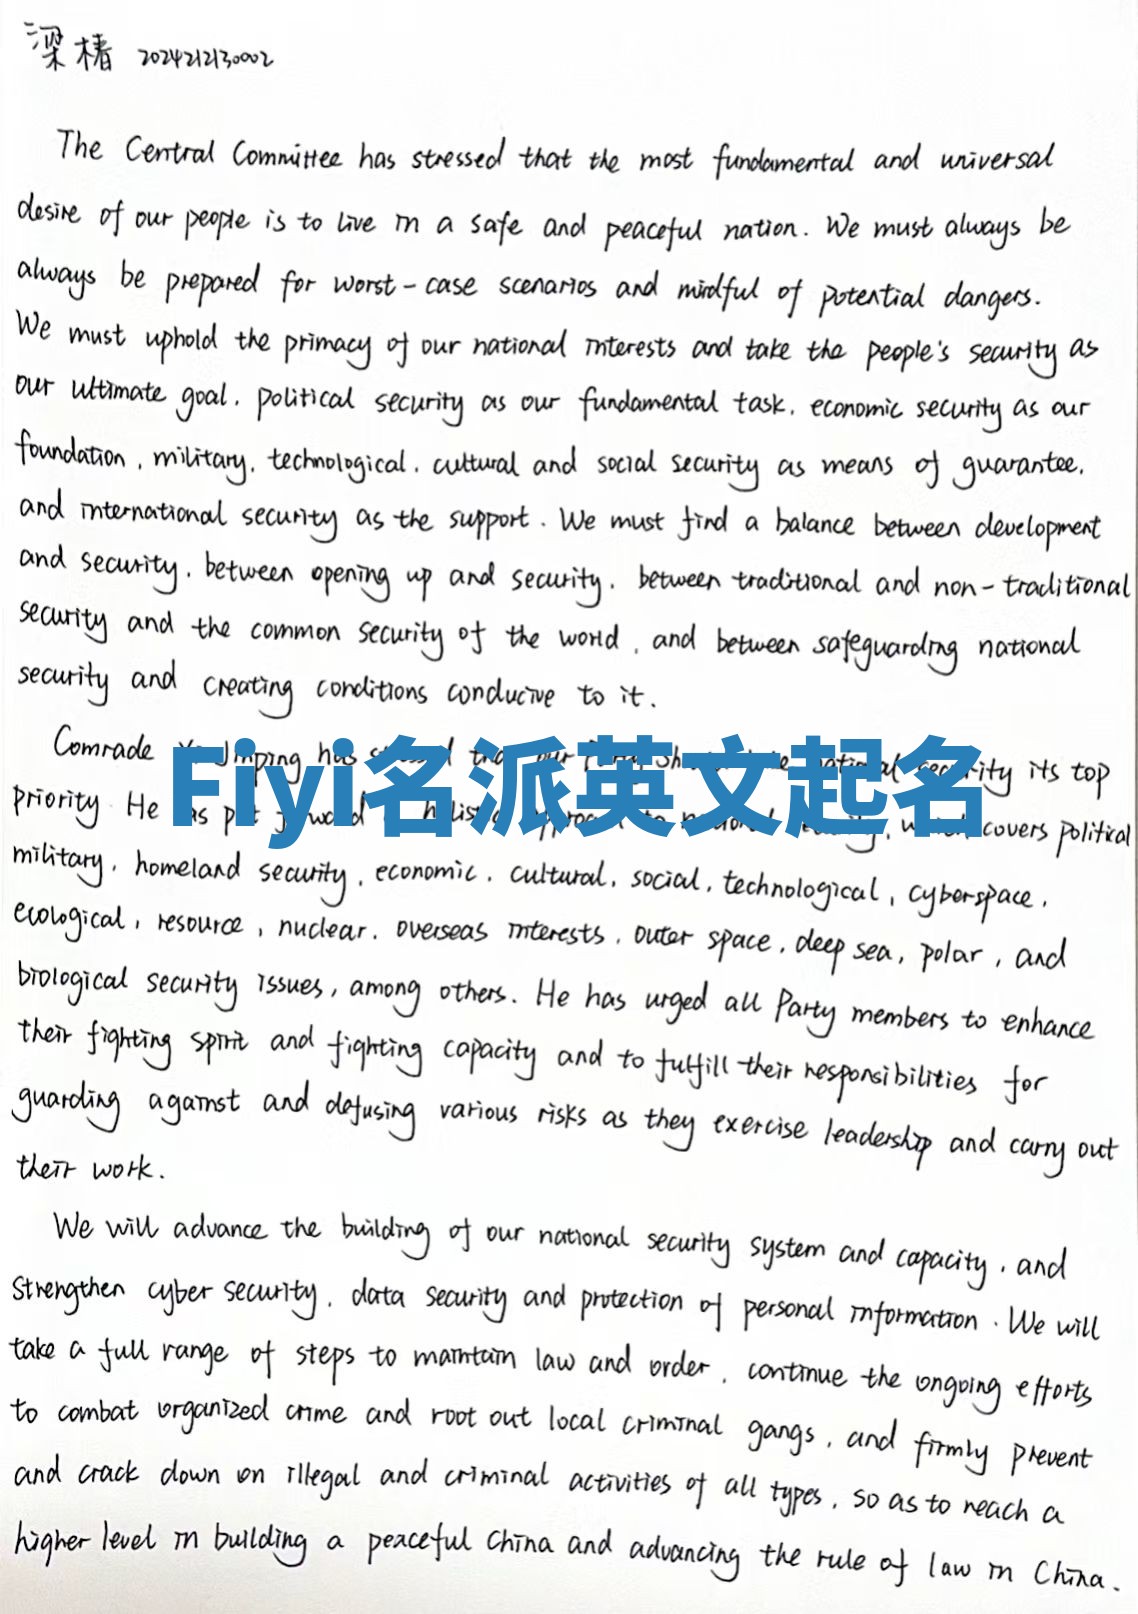 梁椿 2024212130002
The Central Committee has stressed that the most fundamental and universal
desire of our people is to live in a safe and peaceful nation. We must always be
always be prepared for worst-case scenarios and mindful of potential dangers.
We must uphold the primacy of our national interests and take the people's security as
our ultimate goal, political security as our fundamental task, economic security as our
foundation, military, technological, cultural and social security as means of guarantee,
and international security as the support. We must find a balance between development
and security, between opening up and security, between traditional and non-traditional
security and the common security of the world, and between safeguarding national
security and creating conditions conducive to it.
Comrade Jinping has our security its top
Fiyi名派英文起名
priority. He covers political
military, homeland security, economic, cultural, social, technological, cyberspace,
ecological, resource, nuclear, overseas interests, outer space, deep sea, polar, and
biological security issues, among others. He has urged all Party members to enhance
their fighting spirit and fighting capacity and to fulfill their responsibilities for
guarding against and defusing various risks as they exercise leadership and carry out
their work.
We will advance the building of our national security system and capacity, and
strengthen cyber security, data security and protection of personal information. We will
take a full range of steps to maintain law and order, continue the ongoing efforts
to combat organized crime and root out local criminal gangs, and firmly prevent
and crack down on illegal and criminal activities of all types, so as to reach a
higher level in building a peaceful China and advancing the rule of law in China.